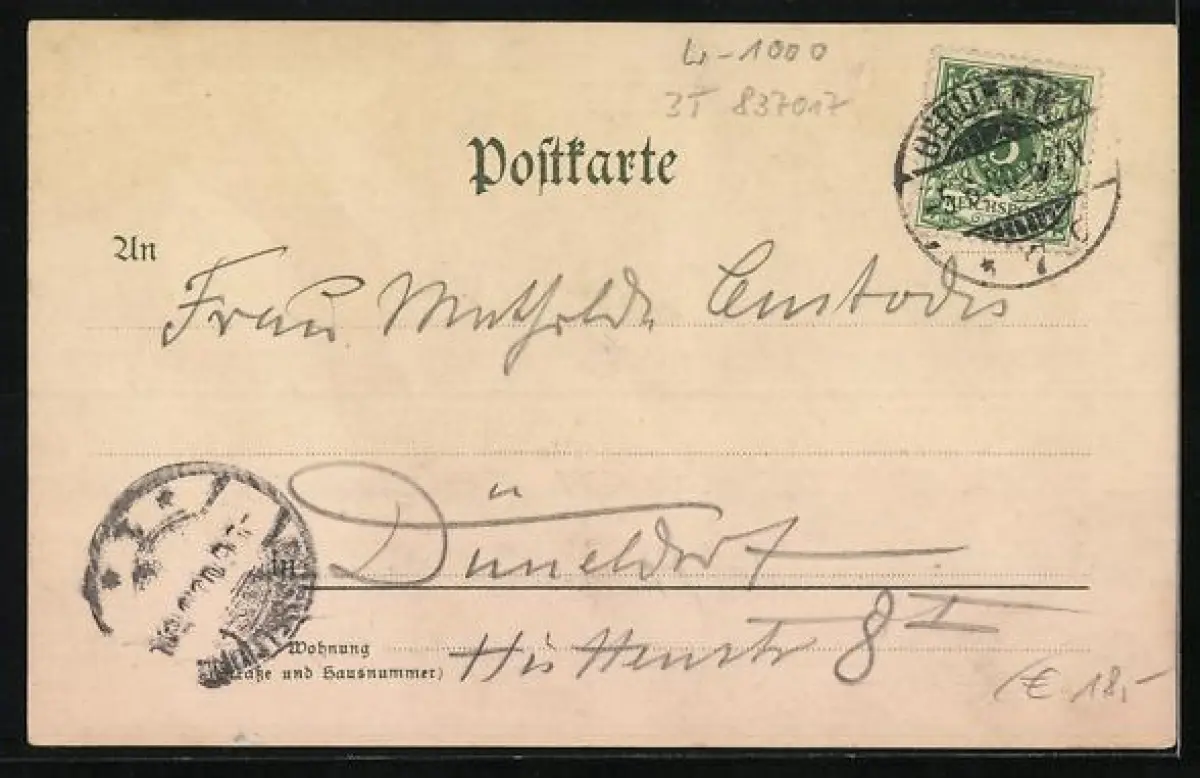 W-1000
3T 837017
Postkarte
5
REICHSPOST
BERLIN N.W.
* 7 c
An
Frau Mathilde Custodis
in Düsseldorf
Wohnung
(Straße und Hausnummer)
8 I
€ 18,-